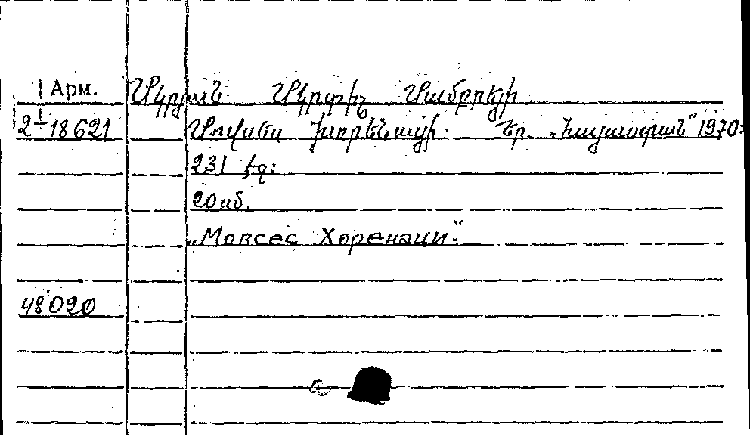 Арм. Մկրյան Մկրտիչ Մամբրեի
2-18621 Մովսես Խորենացի. Եր. „Հայաստան“ 1970.
231 էջ:
20սմ.
„Мовсес Хоренаци.“
48020